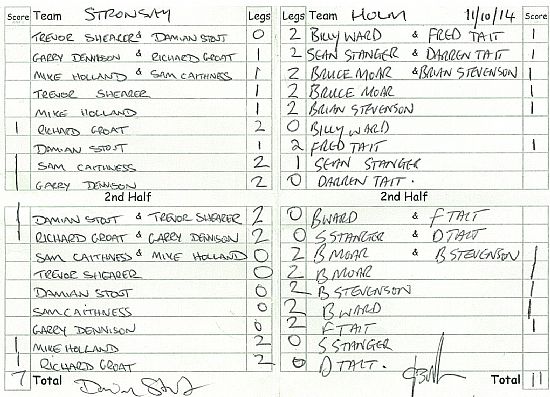 Score Team STRONSAY Legs Legs Team HOLM 11/10/14 Score
TREVOR SHEARER & DAMIAN STOUT 0 2 BILLY WARD & FRED TAIT 1
GARRY DENNISON & RICHARD GROAT 1 2 SEAN STANGER & DARREN TAIT 1
MIKE HOLLAND & SAM CAITHNESS 1 2 BRUCE MOAR & BRIAN STEVENSON 1
TREVOR SHEARER 1 2 BRUCE MOAR 1
MIKE HOLLAND 1 2 BRIAN STEVENSON 1
1 RICHARD GROAT 2 0 BILLY WARD
DAMIAN STOUT 1 2 FRED TAIT 1
1 SAM CAITHNESS 2 1 SEAN STANGER
1 GARRY DENNISON 2 0 DARREN TAIT.
2nd Half 2nd Half
1 DAMIAN STOUT & TREVOR SHEARER 2 0 B WARD & F TAIT
1 RICHARD GROAT & GARRY DENNISON 2 0 S STANGER & D TAIT
SAM CAITHNESS & MIKE HOLLAND 0 2 B MOAR & B STEVENSON 1
TREVOR SHEARER 0 2 B MOAR 1
DAMIAN STOUT 0 2 B STEVENSON 1
SAM CAITHNESS 0 2 B WARD 1
GARRY DENNISON 0 2 F TAIT 1
1 MIKE HOLLAND 2 0 S STANGER
1 RICHARD GROAT 2 0 D TAIT.
7 Total Damian Stout Total 11